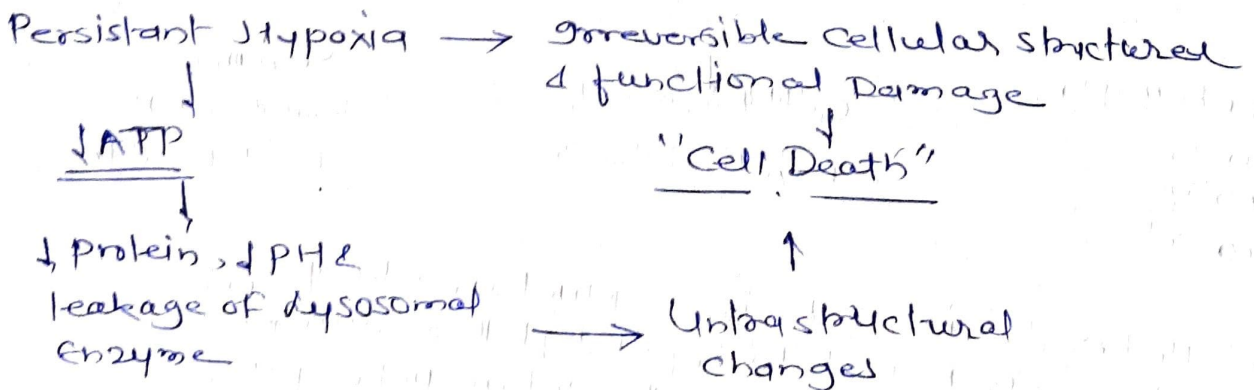 Persistant Hypoxia → Irreversible Cellular structural
& functional Damage
↓ ↓
↓ATP "Cell Death"
↓
↓ protein, ↓ PH & ↑
leakage of Lysosomal
Enzyme → Ultrastructural
changes